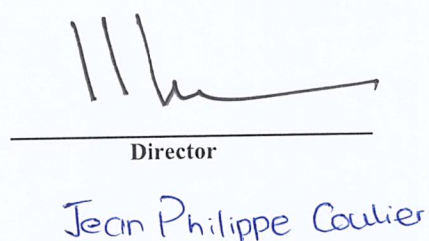 Director
Jean Philippe Coulier